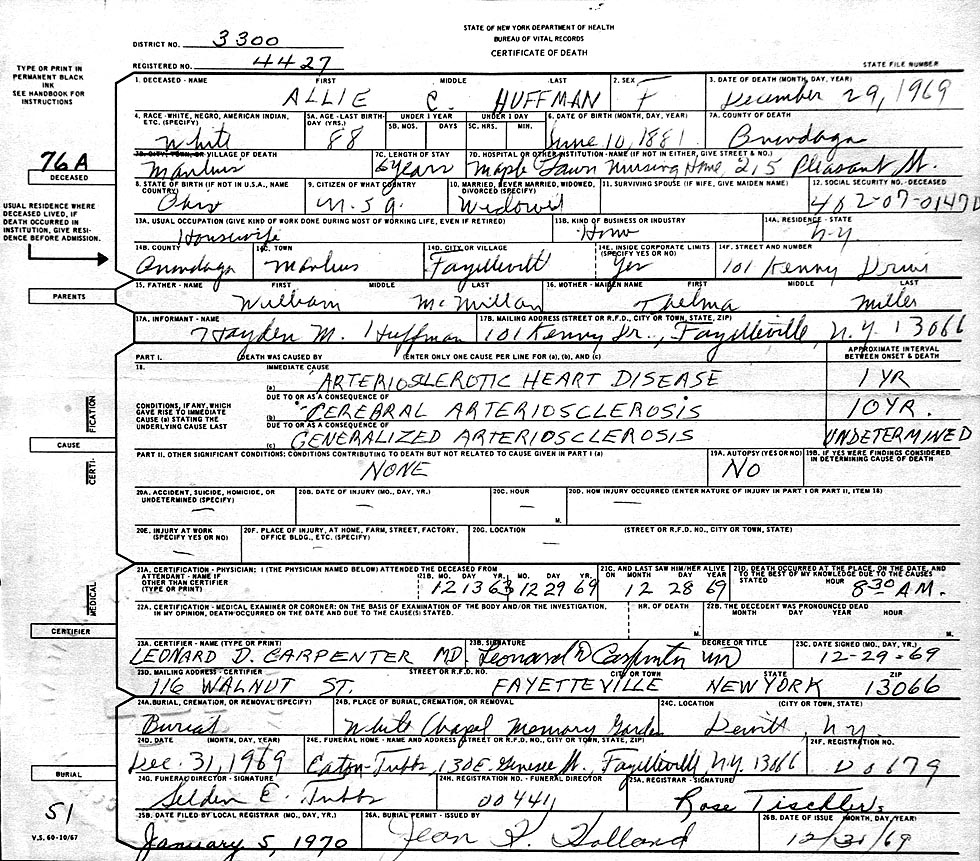 STATE OF NEW YORK DEPARTMENT OF HEALTH
BUREAU OF VITAL RECORDS
CERTIFICATE OF DEATH
DISTRICT NO. 3300
REGISTERED NO. 4427
STATE FILE NUMBER
TYPE OR PRINT IN
PERMANENT BLACK
INK
SEE HANDBOOK FOR
INSTRUCTIONS
1. DECEASED - NAME FIRST MIDDLE LAST 2. SEX 3. DATE OF DEATH (MONTH, DAY, YEAR)
ALLIE C. HUFFMAN F December 29, 1969
4. RACE - WHITE, NEGRO, AMERICAN INDIAN, ETC. (SPECIFY) 5A. AGE - LAST BIRTHDAY (YRS.) UNDER 1 YEAR 5B. MOS. DAYS UNDER 1 DAY 5C. HRS. MIN. 6. DATE OF BIRTH (MONTH, DAY, YEAR) 7A. COUNTY OF DEATH
White 88 June 10, 1881 Onondaga
76A
DECEASED
7B. CITY, TOWN, OR VILLAGE OF DEATH 7C. LENGTH OF STAY 7D. HOSPITAL OR OTHER INSTITUTION - NAME (IF NOT IN EITHER, GIVE STREET & NO.)
Manlius 6 years Maple Lawn Nursing Home, 215 Pleasant St.
8. STATE OF BIRTH (IF NOT IN U.S.A., NAME COUNTRY) 9. CITIZEN OF WHAT COUNTRY 10. MARRIED, NEVER MARRIED, WIDOWED, DIVORCED (SPECIFY) 11. SURVIVING SPOUSE (IF WIFE, GIVE MAIDEN NAME) 12. SOCIAL SECURITY NO. - DECEASED
Ohio U.S.A. Widowed 402-07-0147D
USUAL RESIDENCE WHERE
DECEASED LIVED, IF
DEATH OCCURRED IN
INSTITUTION, GIVE RESI-
DENCE BEFORE ADMISSION.
13A. USUAL OCCUPATION (GIVE KIND OF WORK DONE DURING MOST OF WORKING LIFE, EVEN IF RETIRED) 13B. KIND OF BUSINESS OR INDUSTRY 14A. RESIDENCE - STATE
Housewife Home N.Y.
14B. COUNTY 14C. TOWN 14D. CITY OR VILLAGE 14E. INSIDE CORPORATE LIMITS (SPECIFY YES OR NO) 14F. STREET AND NUMBER
Onondaga Manlius Fayetteville Yes 101 Kenny Drive
PARENTS
15. FATHER - NAME FIRST MIDDLE LAST 16. MOTHER - MAIDEN NAME FIRST MIDDLE LAST
William McMillan Thelma Miller
17A. INFORMANT - NAME 17B. MAILING ADDRESS (STREET OR R.F.D., CITY OR TOWN, STATE, ZIP)
Hayden M. Huffman 101 Kenny Dr., Fayetteville, N.Y. 13066
PART I. DEATH WAS CAUSED BY (ENTER ONLY ONE CAUSE PER LINE FOR (a), (b), AND (c) APPROXIMATE INTERVAL BETWEEN ONSET & DEATH
18. IMMEDIATE CAUSE
(a) ARTERIOSLEROTIC HEART DISEASE 1 YR
CONDITIONS, IF ANY, WHICH GAVE RISE TO IMMEDIATE CAUSE (a) STATING THE UNDERLYING CAUSE LAST
DUE TO OR AS A CONSEQUENCE OF
(b) CEREBRAL ARTERIOSCLEROSIS 10 YR.
DUE TO OR AS A CONSEQUENCE OF
(c) GENERALIZED ARTERIOSCLEROSIS UNDETERMINED
CERTI-
FICATION
CAUSE
PART II. OTHER SIGNIFICANT CONDITIONS; CONDITIONS CONTRIBUTING TO DEATH BUT NOT RELATED TO CAUSE GIVEN IN PART I (a) 19A. AUTOPSY (YES OR NO) 19B. IF YES WERE FINDINGS CONSIDERED IN DETERMINING CAUSE OF DEATH
NONE NO
20A. ACCIDENT, SUICIDE, HOMICIDE, OR UNDETERMINED (SPECIFY) 20B. DATE OF INJURY (MO., DAY, YR.) 20C. HOUR M. 20D. HOW INJURY OCCURRED (ENTER NATURE OF INJURY IN PART I OR PART II, ITEM 18)
— — — —
20E. INJURY AT WORK (SPECIFY YES OR NO) 20F. PLACE OF INJURY, AT HOME, FARM, STREET, FACTORY, OFFICE BLDG., ETC. (SPECIFY) 20G. LOCATION (STREET OR R.F.D. NO., CITY OR TOWN, STATE)
— — —
21A. CERTIFICATION - PHYSICIAN; I (THE PHYSICIAN NAMED BELOW) ATTENDED THE DECEASED FROM ATTENDANT - NAME IF OTHER THAN CERTIFIER (TYPE OR PRINT) 21B. MO. DAY YR. MO. DAY YR. 21C. AND LAST SAW HIM/HER ALIVE ON MONTH DAY YEAR 21D. DEATH OCCURRED AT THE PLACE, ON THE DATE, AND TO THE BEST OF MY KNOWLEDGE DUE TO THE CAUSES STATED HOUR
12 13 63 12 29 69 12 28 69 8 30 A.M.
MEDICAL
CERTIFIER
22A. CERTIFICATION - MEDICAL EXAMINER OR CORONER: ON THE BASIS OF EXAMINATION OF THE BODY AND/OR THE INVESTIGATION, IN MY OPINION, DEATH OCCURRED ON THE DATE AND DUE TO THE CAUSE(S) STATED. HR. OF DEATH M. 22B. THE DECEDENT WAS PRONOUNCED DEAD MONTH DAY YEAR HOUR M.
23A. CERTIFIER - NAME (TYPE OR PRINT) 23B. SIGNATURE DEGREE OR TITLE 23C. DATE SIGNED (MO., DAY, YR.)
LEONARD D. CARPENTER MD. Leonard D Carpenter MD 12-29-69
23D. MAILING ADDRESS - CERTIFIER STREET OR R.F.D. NO. CITY OR TOWN STATE ZIP
116 WALNUT ST. FAYETTEVILLE NEW YORK 13066
24A. BURIAL, CREMATION, OR REMOVAL (SPECIFY) 24B. PLACE OF BURIAL, CREMATION, OR REMOVAL 24C. LOCATION (CITY OR TOWN, STATE)
Burial White Chapel Memory Garden Dewitt, N.Y.
24D. DATE (MONTH, DAY, YEAR) 24E. FUNERAL HOME - NAME AND ADDRESS (STREET OR R.F.D. NO., CITY OR TOWN, STATE, ZIP) 24F. REGISTRATION NO.
Dec. 31, 1969 Eaton-Tubbs, 130 E. Genesee St., Fayetteville N.Y. 13066 00679
BURIAL
24G. FUNERAL DIRECTOR - SIGNATURE 24H. REGISTRATION NO. - FUNERAL DIRECTOR 25A. REGISTRAR - SIGNATURE
Selden E. Tubbs 00441 Rose Tischler
51
25B. DATE FILED BY LOCAL REGISTRAR (MO., DAY, YEAR) 26A. BURIAL PERMIT - ISSUED BY 26B. DATE OF ISSUE (MONTH, DAY, YEAR)
January 5, 1970 Jean Holland 12/31/69
V.S. 60-10/67